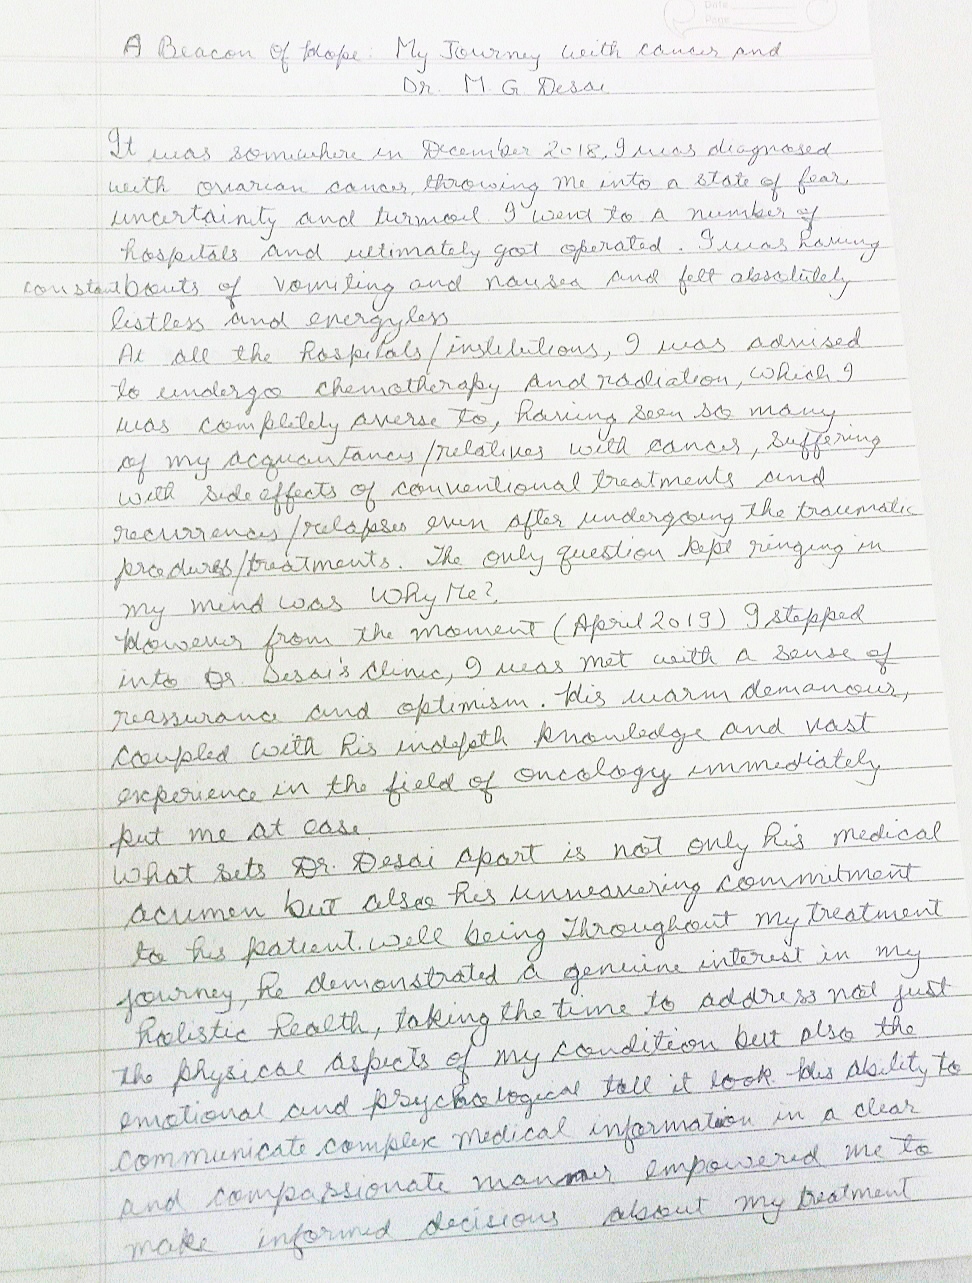 Date
Page
A Beacon of Hope: My Journey with cancer and
Dr. M G Desai
It was somewhere in December 2018, I was diagnosed
with ovarian cancer, throwing me into a state of fear,
uncertainty and turmoil. I went to a number of
hospitals and ultimately got operated. I was having
constant bouts of vomiting and nausea and felt absolutely
listless and energyless
At all the hospitals/institutions, I was advised
to undergo chemotherapy and radiation, which I
was completely averse to, having seen so many
of my acquantances/relatives with cancer, suffering
with side effects of conventional treatments and
recurrences/relapses even after undergoing the traumatic
procedures/treatments. The only question kept ringing in
my mind was Why Me?
However from the moment (April 2019) I stepped
into Dr. Desai's clinic, I was met with a sense of
reassurance and optimism. His warm demanour,
coupled with his indepth knowledge and vast
experience in the field of oncology immediately
put me at ease.
What sets Dr. Desai apart is not only his medical
acumen but also his unwavering commitment
to his patient. well being Throughout my treatment
journey, he demonstrated a genuine interest in my
holistic health, taking the time to address not just
the physical aspects of my condition but also the
emotional and psychological toll it took. His ability to
communicate complex medical information in a clear
and compassionate manner empowered me to
make informed decisions about my treatment